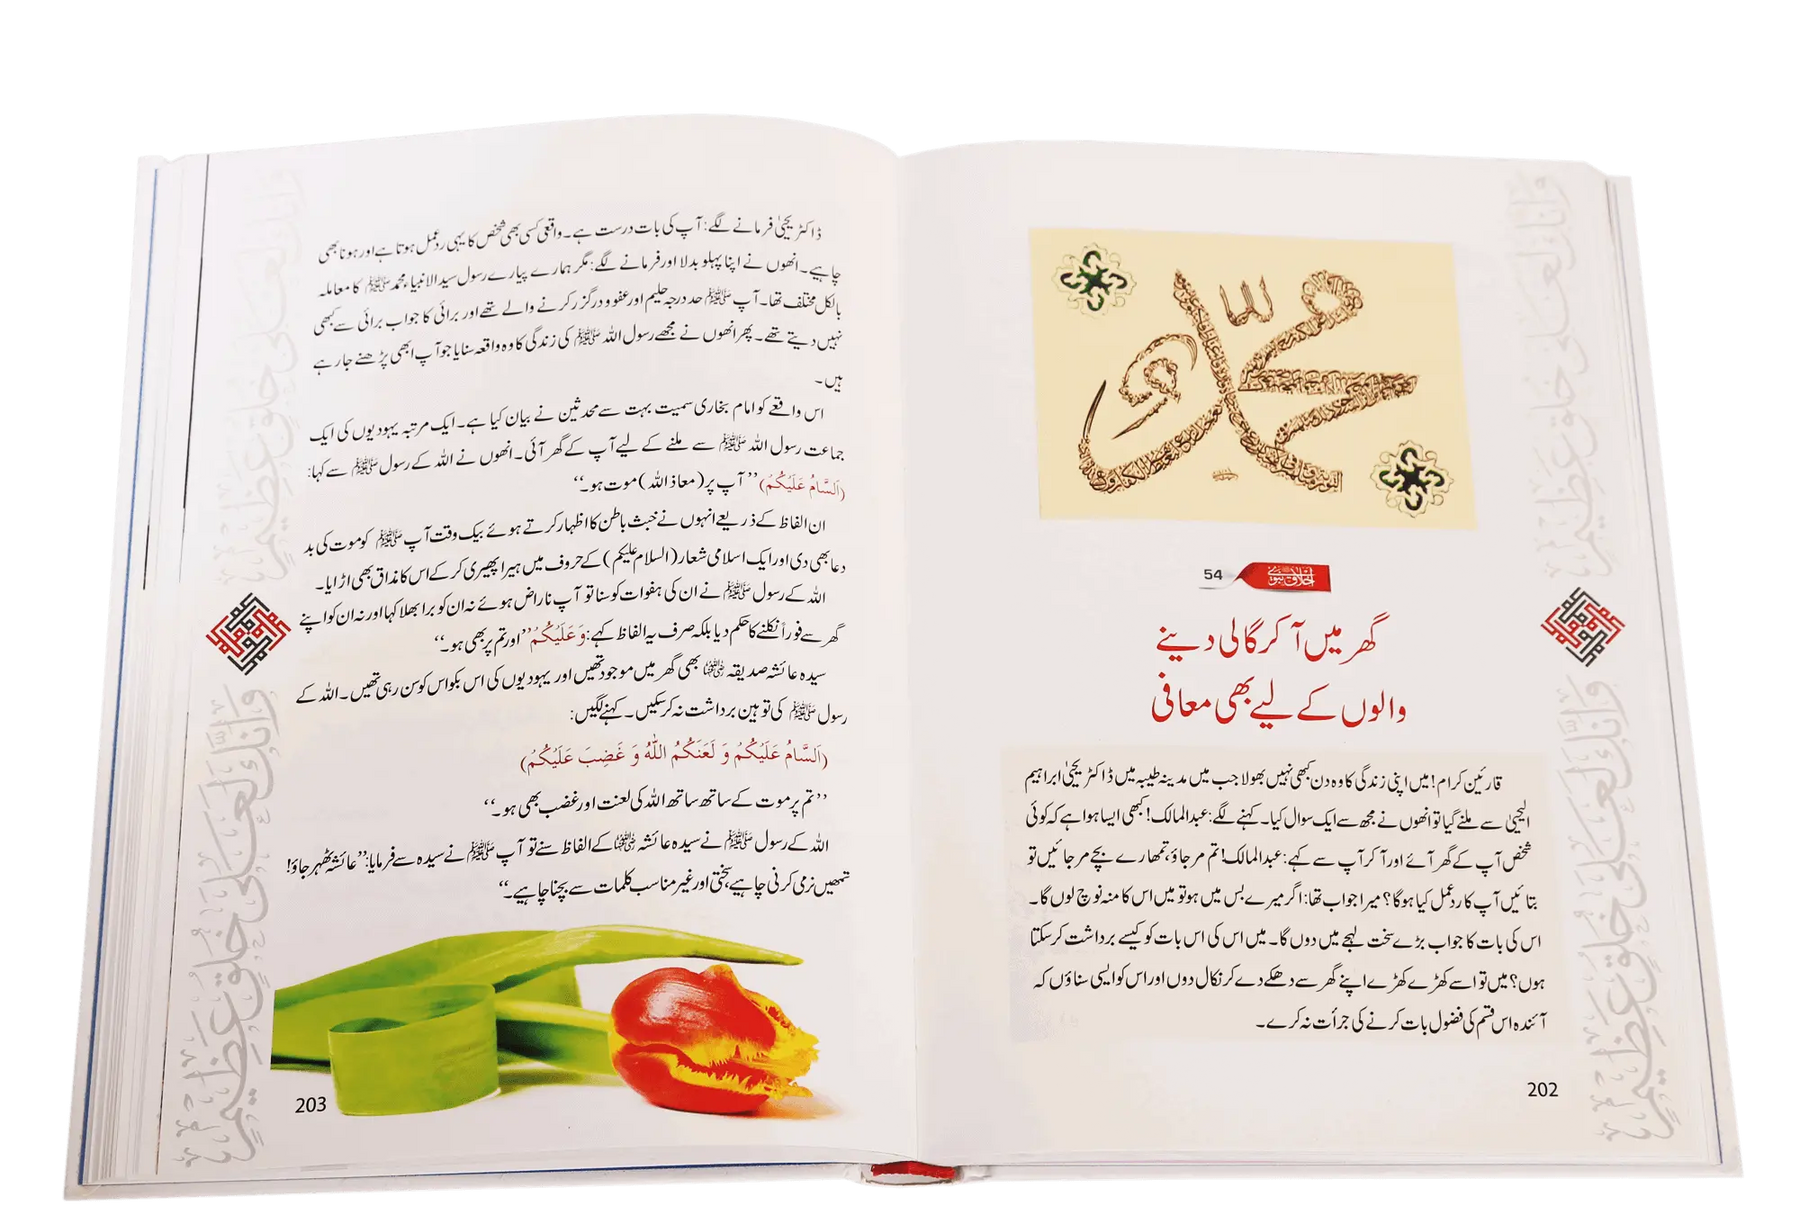 54
اخلاق نبوی
گھر میں آ کر گالی دینے
والوں کے لیے بھی معافی
قارئین کرام! میں اپنی زندگی کا وہ دن کبھی نہیں بھولا جب میں مدینہ طیبہ میں ڈاکٹر یحییٰ ابراہیم
الیحییٰ سے ملنے گیا تو انھوں نے مجھ سے ایک سوال کیا۔ کہنے لگے: عبدالمالک! کبھی ایسا ہوا ہے کہ کوئی
شخص آپ کے گھر آئے اور آ کر آپ سے کہے: عبدالمالک! تم مر جاؤ، تمھارے بچے مر جائیں تو
بتائیں آپ کا ردعمل کیا ہوگا؟ میرا جواب تھا: اگر میرے بس میں ہو تو میں اس کا منہ نوچ لوں گا۔
اس کی بات کا جواب بڑے سخت لہجے میں دوں گا۔ میں اس کی اس بات کو کیسے برداشت کر سکتا
ہوں؟ میں تو اسے کھڑے کھڑے اپنے گھر سے دھکے دے کر نکال دوں اور اس کو ایسی سناؤں کہ
آئندہ اس قسم کی فضول بات کرنے کی جرأت نہ کرے۔
202
وَإِنَّكَ لَعَلَىٰ خُلُقٍ عَظِيمٍ
ڈاکٹر یحییٰ فرمانے لگے: آپ کی بات درست ہے۔ واقعی کسی بھی شخص کا یہی ردعمل ہوتا ہے اور ہونا بھی
چاہیے۔ انھوں نے اپنا پہلو بدلا اور فرمانے لگے: مگر ہمارے پیارے رسول سید الانبیاء محمد ﷺ کا معاملہ
بالکل مختلف تھا۔ آپ ﷺ حد درجہ حلیم اور عفو و درگزر کرنے والے تھے اور برائی کا جواب برائی سے کبھی
نہیں دیتے تھے۔ پھر انھوں نے مجھے رسول اللہ ﷺ کی زندگی کا وہ واقعہ سنایا جو آپ ابھی پڑھنے جا رہے
ہیں۔
اس واقعے کو امام بخاری سمیت بہت سے محدثین نے بیان کیا ہے۔ ایک مرتبہ یہودیوں کی ایک
جماعت رسول اللہ ﷺ سے ملنے کے لیے آپ کے گھر آئی۔ انھوں نے اللہ کے رسول ﷺ سے کہا:
(اَلسَّامُ عَلَيْكُمْ) ’’آپ پر (معاذ اللہ) موت ہو۔‘‘
ان الفاظ کے ذریعے انہوں نے خبث باطن کا اظہار کرتے ہوئے بیک وقت آپ ﷺ کو موت کی بد
دعا بھی دی اور ایک اسلامی شعار (السلام علیکم) کے حروف میں ہیرا پھیری کر کے اس کا مذاق بھی اڑایا۔
اللہ کے رسول ﷺ نے ان کی ہفوات کو سنا تو آپ ناراض ہوئے نہ ان کو برا بھلا کہا اور نہ ان کو اپنے
گھر سے فوراً نکلنے کا حکم دیا بلکہ صرف یہ الفاظ کہے: وَعَلَيْكُمْ ’’اور تم پر بھی ہو۔‘‘
سیدہ عائشہ صدیقہ رضی اللہ عنہا بھی گھر میں موجود تھیں اور یہودیوں کی اس بکواس کو سن رہی تھیں۔ اللہ کے
رسول ﷺ کی توہین برداشت نہ کر سکیں۔ کہنے لگیں:
(اَلسَّامُ عَلَيْكُمْ وَ لَعَنَكُمُ اللّٰهُ وَ غَضِبَ عَلَيْكُمْ)
’’تم پر موت کے ساتھ ساتھ اللہ کی لعنت اور غضب بھی ہو۔‘‘
اللہ کے رسول ﷺ نے سیدہ عائشہ رضی اللہ عنہا کے الفاظ سنے تو آپ ﷺ نے سیدہ سے فرمایا: ’’عائشہ ٹھہر جاؤ!
تمھیں نرمی کرنی چاہیے، سختی اور غیر مناسب کلمات سے بچنا چاہیے۔‘‘
203
وَإِنَّكَ لَعَلَىٰ خُلُقٍ عَظِيمٍ